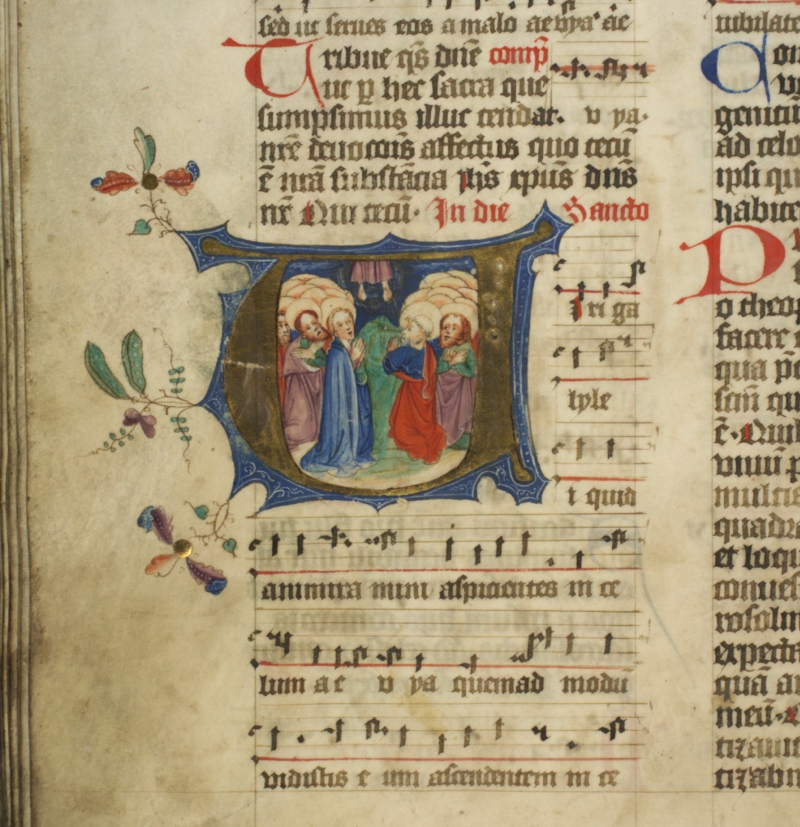 sed ut serues eos a malo aeuya ae
Tribue q̄s dn̄e comp̄
Auc p hec sacra que
sumpsimus illuc tendat. v ya.
nr̄e deuocōis affectus quo tecū
ē nr̄a substācia ih̄s xpūs dn̄s
nr̄ Qui tecū. In die Sancto
Viri ga
lyle
i quid
ammira mini aspicientes in ce
lum ae v ya quemad modū
vidistis e um ascendentem in ce
iubilate
genitū
ad celo
ipsi qu
habite
P
o theop
facere
qua p
multis
quadra
et loqu
conues
rosolim
expecta
quā au
meū.
tizauit
tizabi